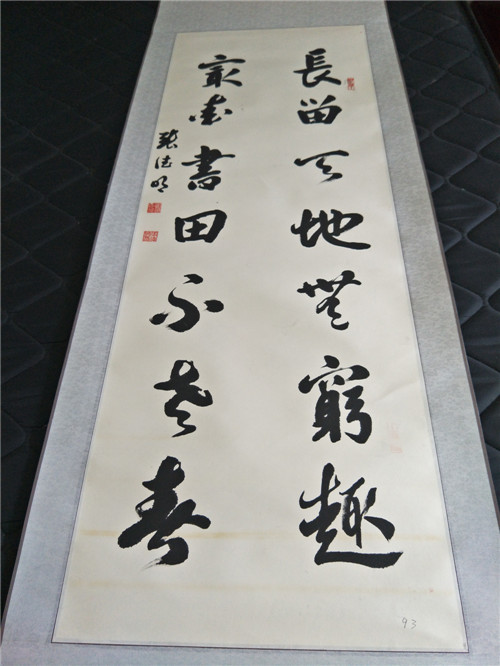 長留天地無窮趣
最愛書田不老春
張德明
93